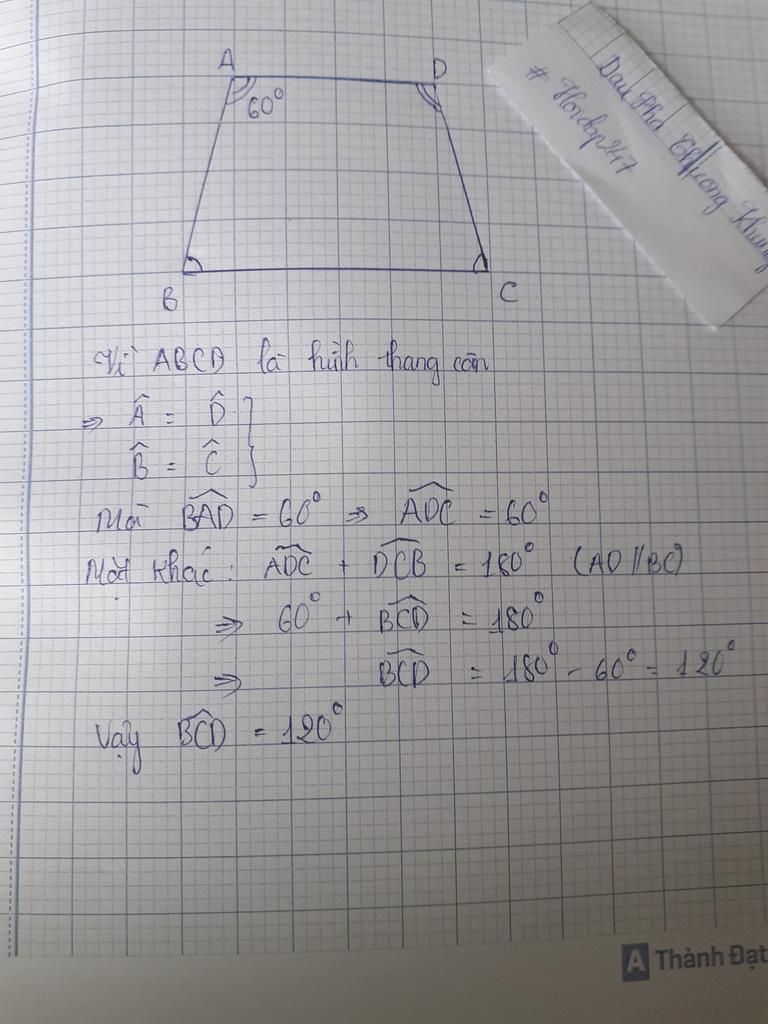 A D
60°
B C
Dau Pha Thuong Khung
# Hoidap247
Vì ABCD là hình thang cân
⇒ Â = D̂ }
B̂ = Ĉ }
Mà B͡AD = 60° ⇒ A͡DC = 60°
Mặt khác: A͡DC + D͡CB = 180° (AD // BC)
⇒ 60° + B͡CD = 180°
⇒ B͡CD = 180° - 60° = 120°
Vậy B͡CD = 120°
A Thành Đạt